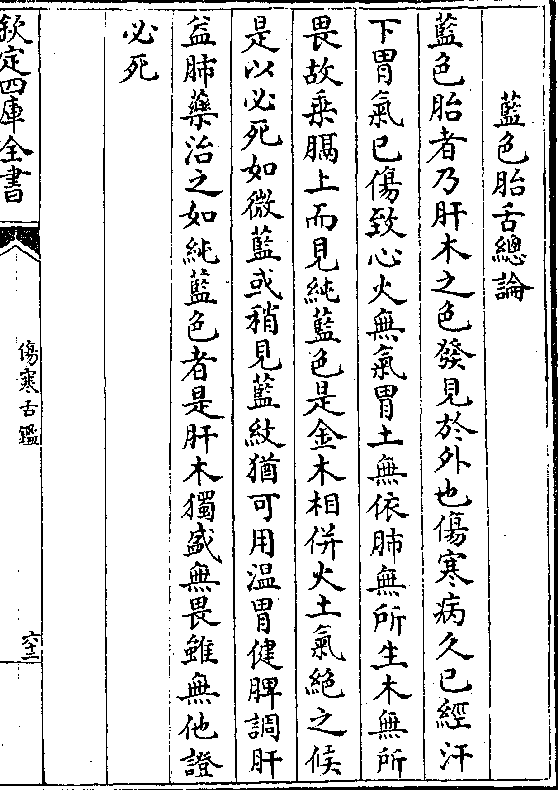 藍色胎舌總論
藍色胎者乃肝木之色發見於外也傷寒病久已經汗
下胃氣已傷致心火無氣胃土無依肺無所生木無所
畏故乘膈上而見純藍色是金木相併火土氣絶之候
是以必死如微藍或稍見藍紋猶可用温胃健脾調肝
益肺藥治之如純藍色者是肝木獨盛無畏雖無他證
必死
欽定四庫全書
傷寒舌鑑
六十二